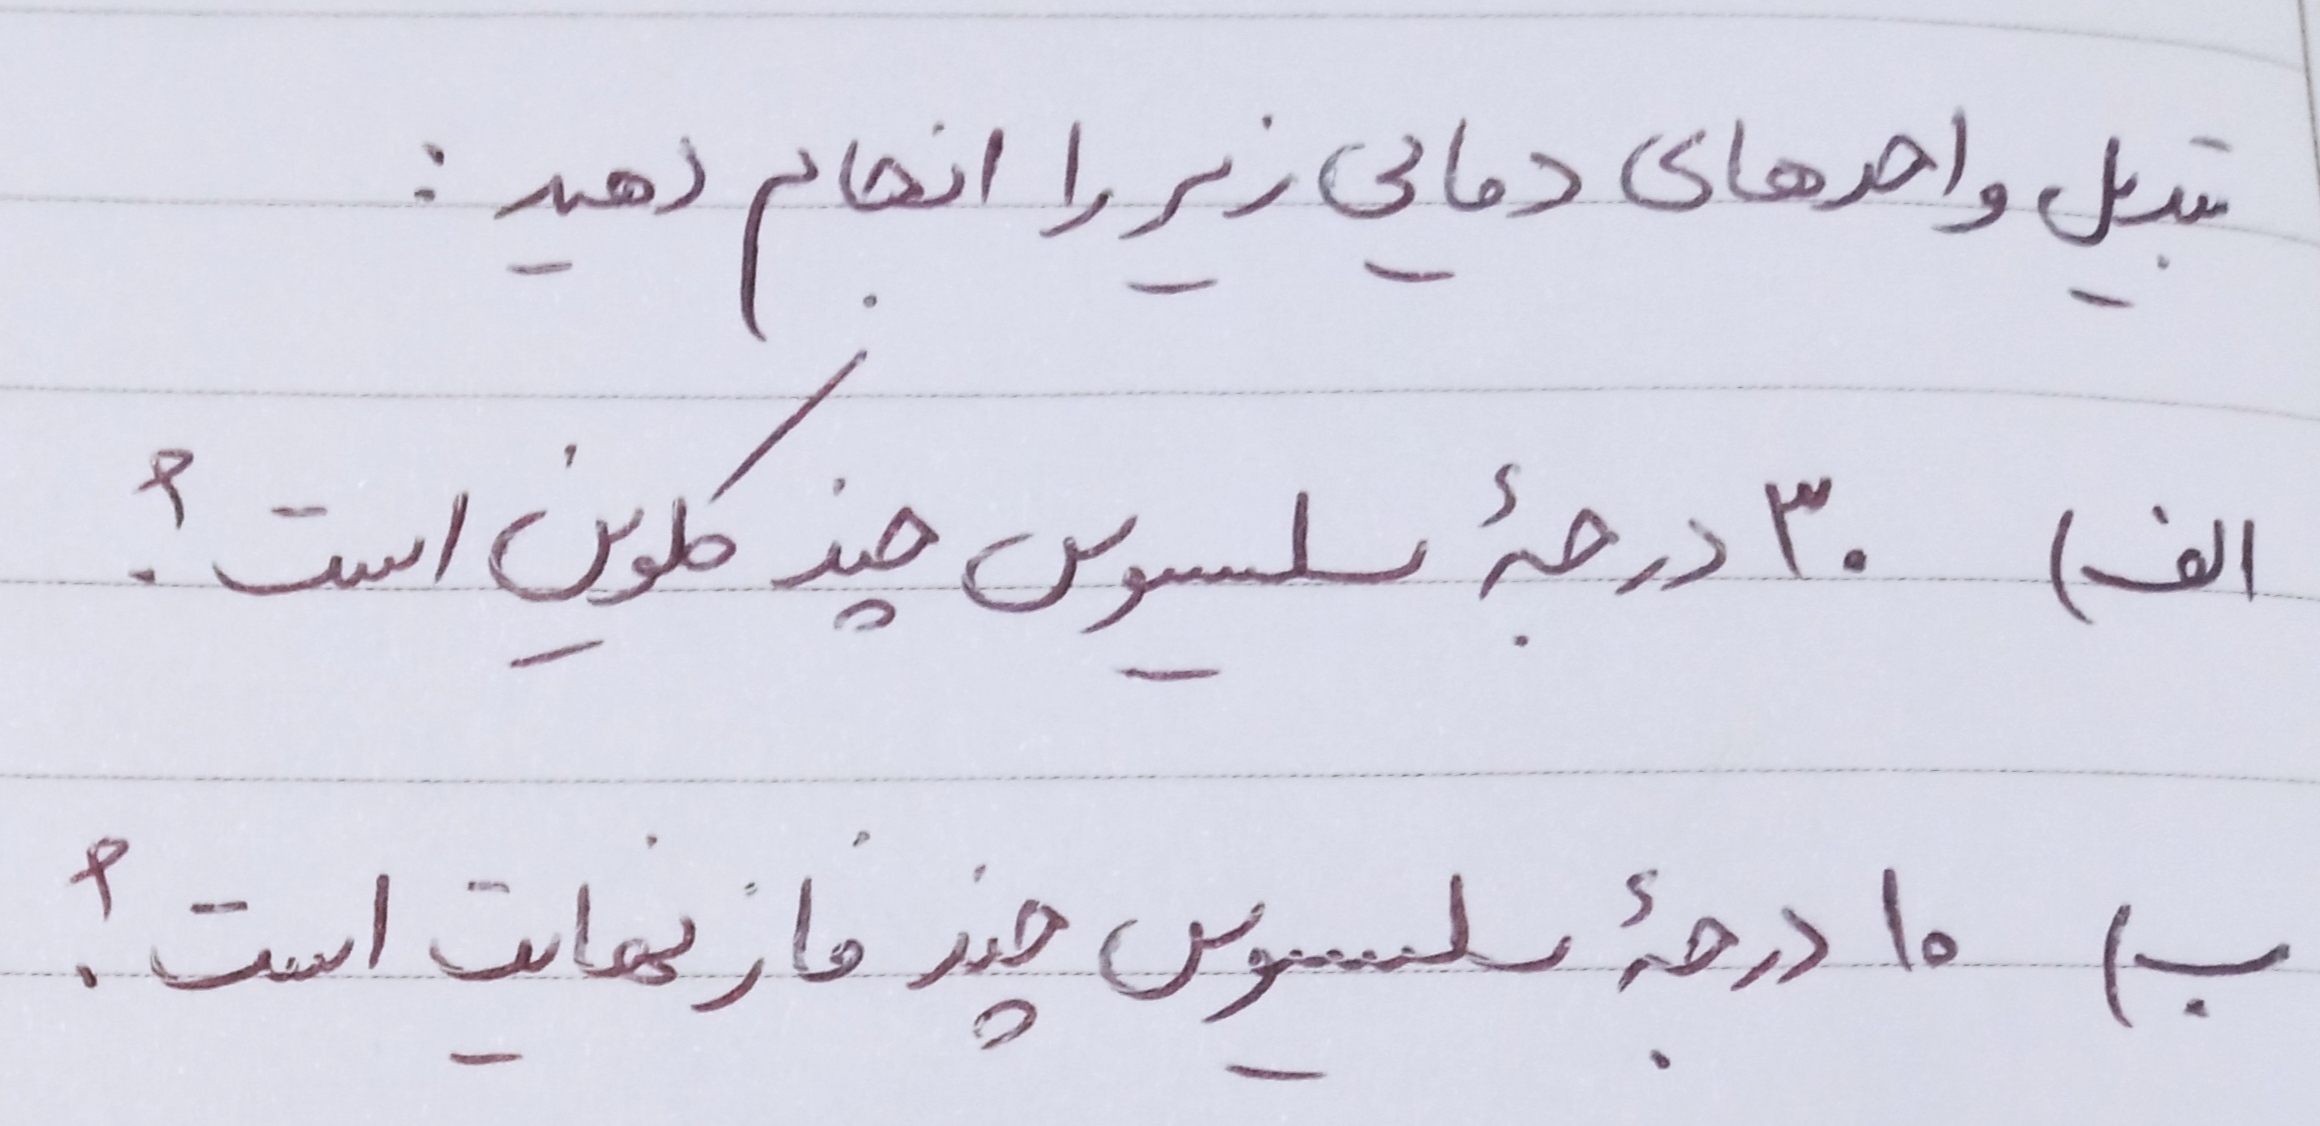 تبدیل واحدهای دمایی زیر را انجام دهید :
الف) ۳۰ درجهٔ سلسیوس چند کلوین است ؟
ب) ۱۰ درجهٔ سلسیوس چند فارنهایت است ؟